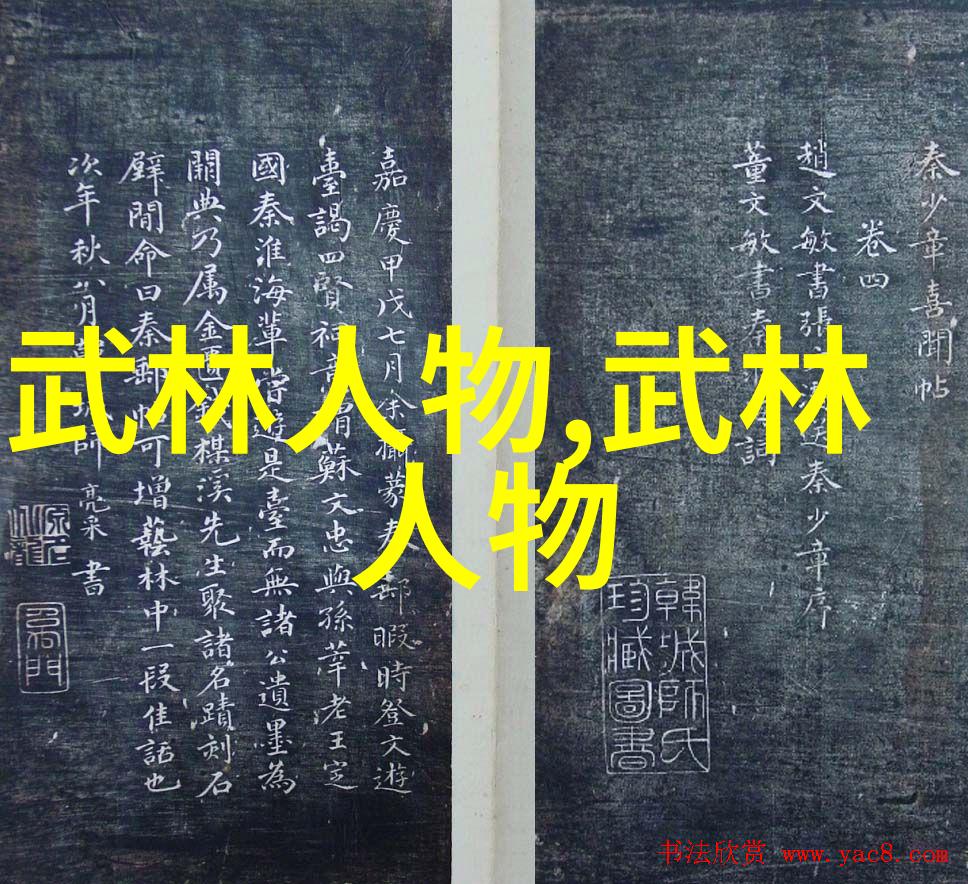 武林人物,武林
人物
秦少章喜聞帖
卷四
趙文敏書張送秦少章序
董文敏書秦詞
韓城師氏
珍臧圖書
嘉慶甲戊七月余攝蒙郵暇時登文遊
臺謁四賢祠蘇文忠與孫莘老王定
國秦淮海輩嘗遊是臺而無諸公遺墨為
闕典乃属金匱楳溪先生聚諸名蹟刻石
壁間命曰秦郵帖可增藝林中一段佳話也
次年秋八月師亮采書
书法欣赏 www.yac8.com